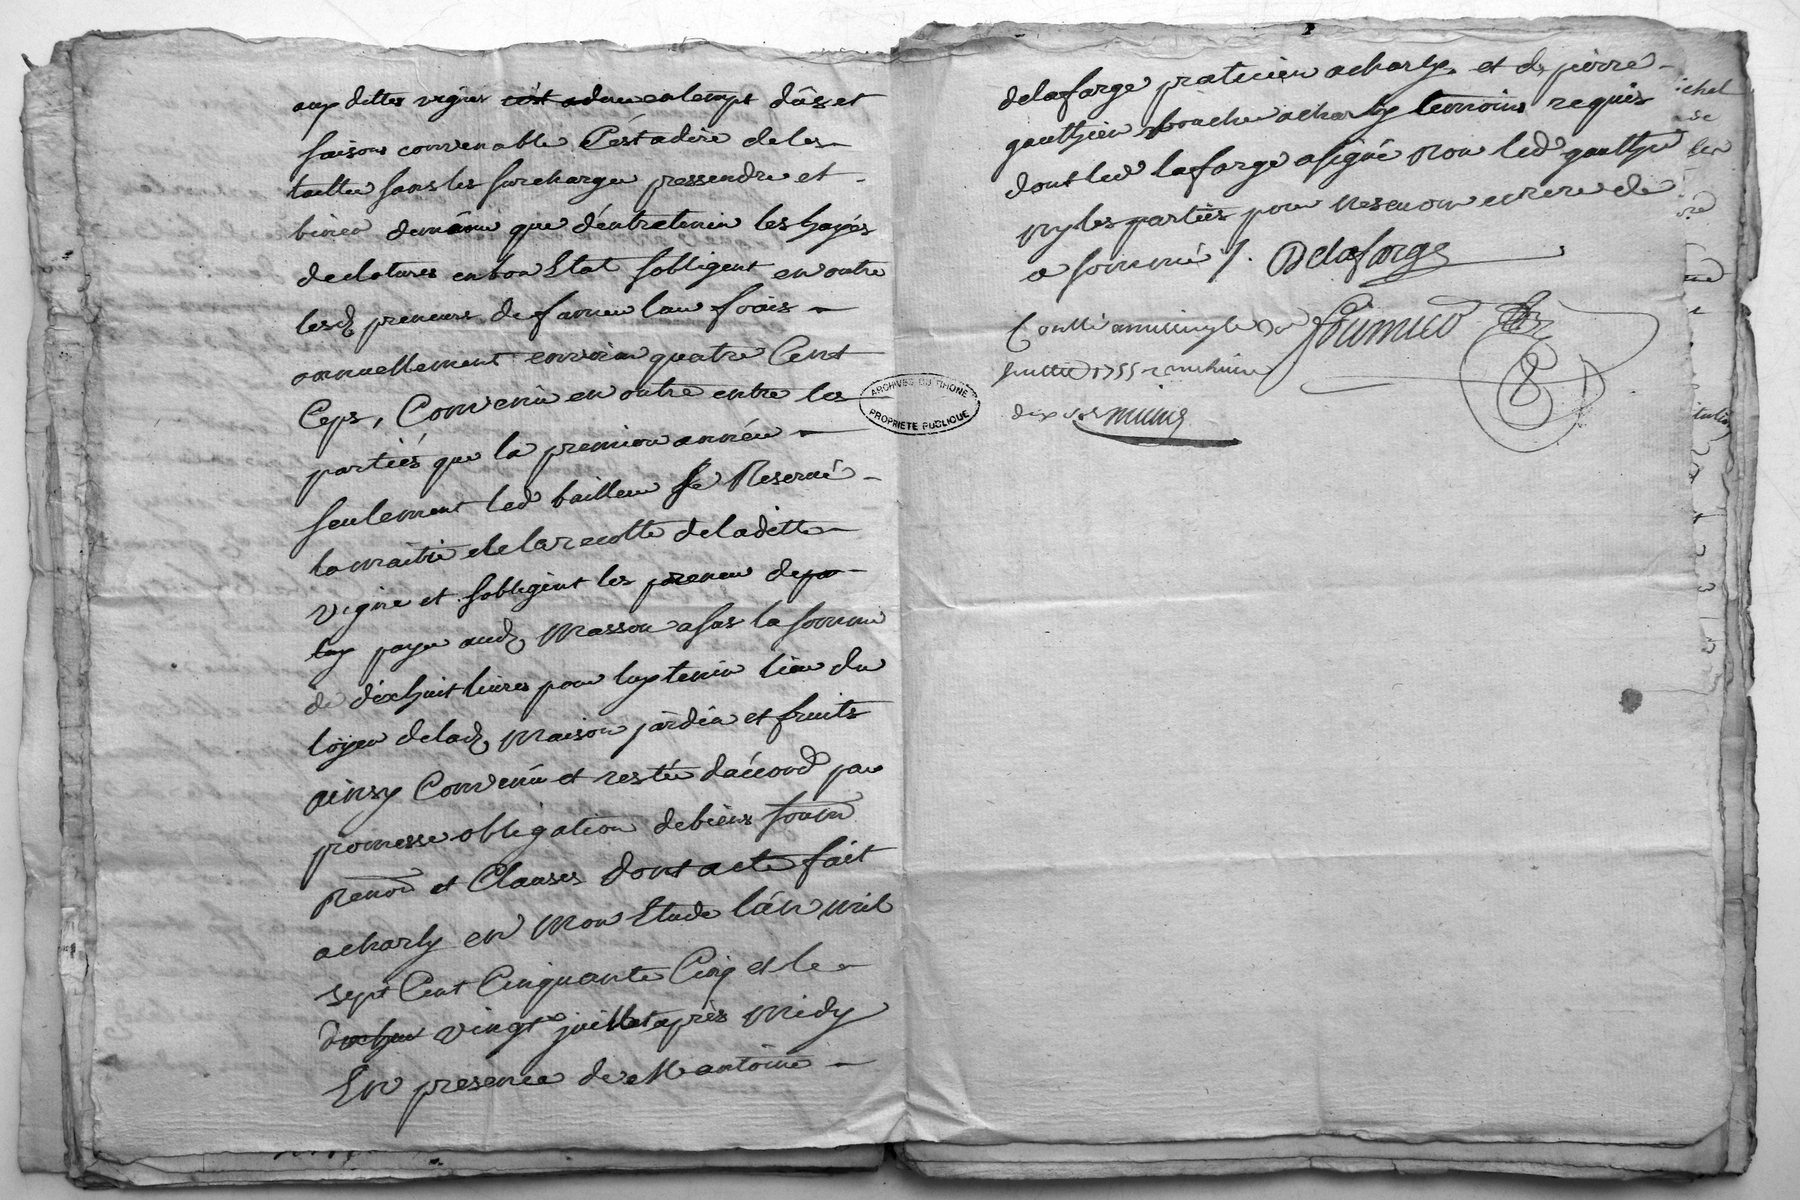 aux dittes vignes en temps dûs et
saisons convenable C'éstadire de les
tailler sans les surcharger pressendre et
biner demême que d'éntretenir les hayés
declotures en bon Etat sobligent en outre
lesd preneurs de faire lau frais
annuellement environ quatre Cent
Ceps, Convenu en outre entre les
partiés que la premiere année
seulement led bailleur se Reservé
la maitié de la recolte deladitte
vigne et sobligent les preneur de
luy payer aud Masson a fas la somme
de dixhuit livres pour luy tenir lieu du
loyer delad Maison jardin et fruits
ainsy Convenu et restée daccord par
promesse obligation debiens soum
Renon et Clauses dont acte fait
acharly en Mon Etude l'án mil
sept Cent Cinquante Cinq et le
vingt juillet après Midy
En presence de Me antoine
delaforge praticien acharly et de pierre
gauthier acharly temoins requis
dont led laforge a signé Non led gauthier
Ny les partiés pour ne scavoir ecrire de
ce sommé /. Delaforge
Conttrollé a millery le
juillet 1755 r
dix sols
ARCHIVES DU RHONE
PROPRIETE PUBLIQUE